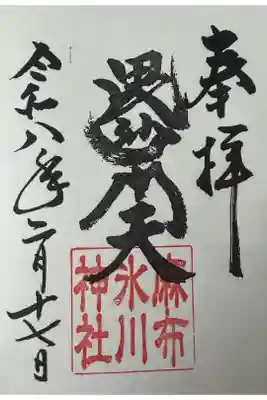 奉拝
毘沙門天
令和八年二月十七日
麻布
氷川
神社